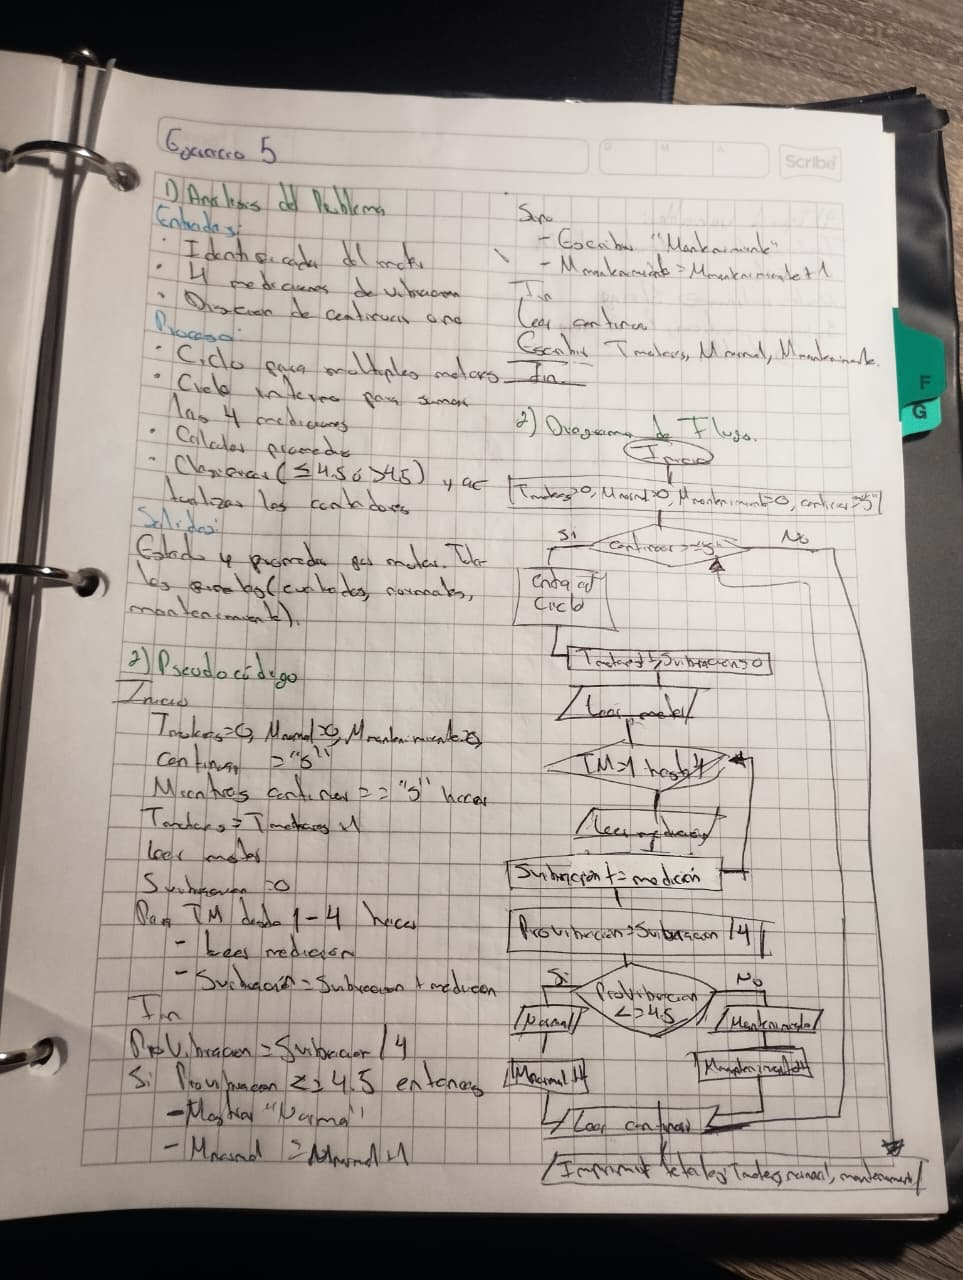 Ejercicio 5
D M A
Scribe
1) Análisis del Problema
Entradas:
· Identificador del motor
· 4 mediciones de vibracion
· Opcion de continuar o no
Proceso:
· Ciclo para multiples motores
· Ciclo interno para sumar
las 4 mediciones
· Calcular promedio
· Clasificar (≤4.5 ó >4.5) y ac
tualizar los contadores
Salidas:
Estado y promedio por motor. Tota
les (, normales,
mantenimiento).
2) Pseudocódigo
Inicio
Tmotores=0, Mnormal=0, Mmantenimiento=0,
continuar = "s"
Mientras continuar == "s" hacer
Tmotores = Tmotores +1
Leer motor
Svibracion =0
Para TM desde 1-4 hacer
- Leer medición
- Svibración = Svibracion + medicion
Fin
ProVibracion = Svibracion / 4
Si Provibracion <= 4.5 entonces
- Mostrar "Normal"
- Mnormal = Mnormal +1
Sino
- Escribir "Mantenimiento"
- Mmantenimiento = Mmantenimiento +1
Fin
Leer continuar
Escribir Tmotores, Mnormal, Mmantenimiento.
Fin
2) Diagrama de Flujo.
Inicio
Tmotores=0, Mnormal=0, Mmantenimiento=0, continuar="s"
Si
continuar == "s"
No
Entra al
Ciclo
Tmotores++, Svibracion=0
Leer motor
TM=1 hasta 4
Leer medición
Svibracion += medición
ProVibracion = Svibracion / 4
Si
ProVibracion
<= 4.5
No
Normal
Mantenimiento
Mnormal ++
Mmantenimiento ++
Leer continuar
Imprimir totales: Tmotores, normal, mantenimiento
F
G